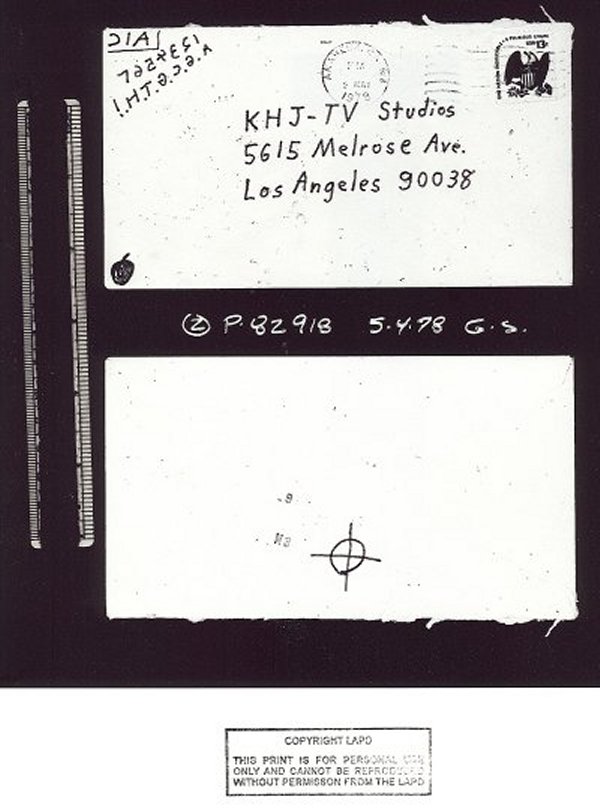 KHJ-TV Studios
5615 Melrose Ave.
Los Angeles 90038
13c
1978
② P-82918 5.4.78 G.S.
COPYRIGHT LAPD
THIS PRINT IS FOR PERSONAL USE
ONLY AND CANNOT BE REPRODUCED
WITHOUT PERMISSON FROM THE LAPD